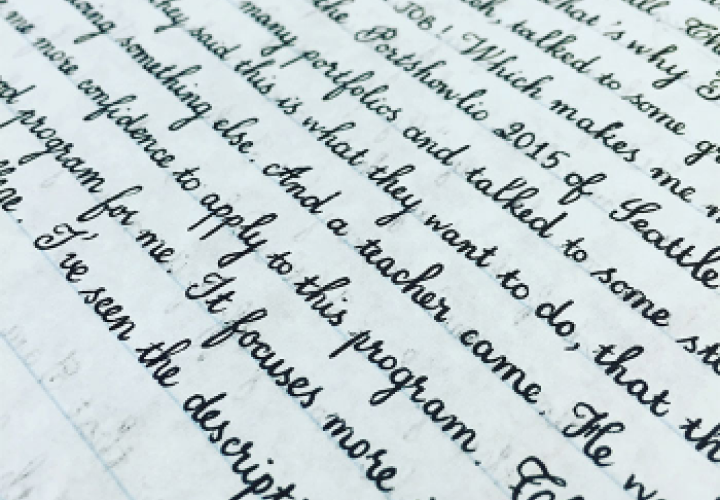 why
talked to some
JOB! Which makes me
the Portshowlio 2015 of Seattle
many portfolios and talked to some
they said this is what they want to do, that
something else. And a teacher came. He
me more confidence to apply to this program.
program for me. It focuses more
I've seen the